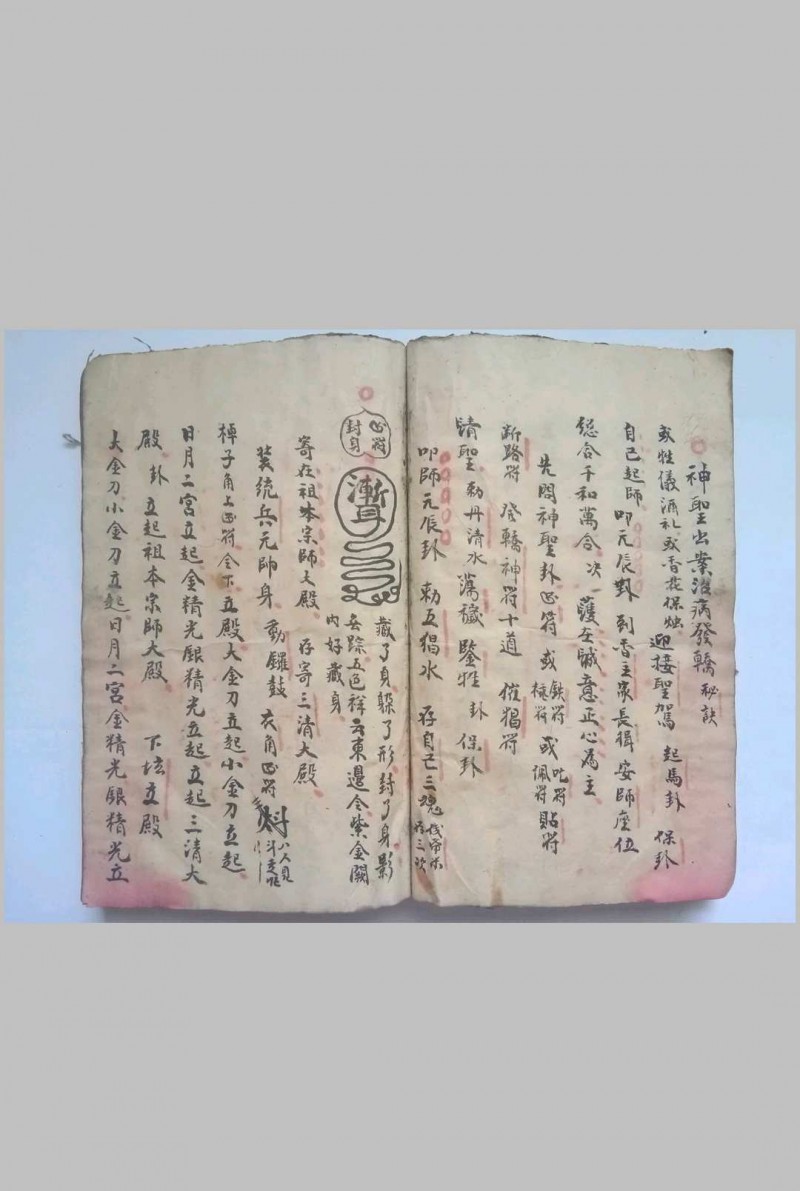 神聖出業治病發轎秘訣
或牲儀酒礼或香花保烛 迎接聖駕 起馬卦 保卦
自己起師 叩元辰卦 到香主家長揖安師座位
總合千和萬合次 護在誠意正心為主
先問神聖卦 正符 或鉄符 或叱符 佩符 貼符
断路符 發轎神符十道 催猖符
請聖 勅丹清水 蕩穢 鑒牲 卦 保卦
叩師元辰卦 勅五猖水 存自己三魂
正符
封身
藏了身躲了形封了身影
去踪五色祥云東邊合紫金闕
内好藏身
寄在祖本宗師大殿 存寄三清大殿
裝統兵元帥身 動鑼鼓 衣角正符
棹子角上正符合下立殿大金刀立起小金刀立起
日月二宮立起金精光銀精光立起立起三清大
殿 卦 立起祖本宗師大殿 下坛立殿
大金刀小金刀立起日月二宮金精光銀精光立